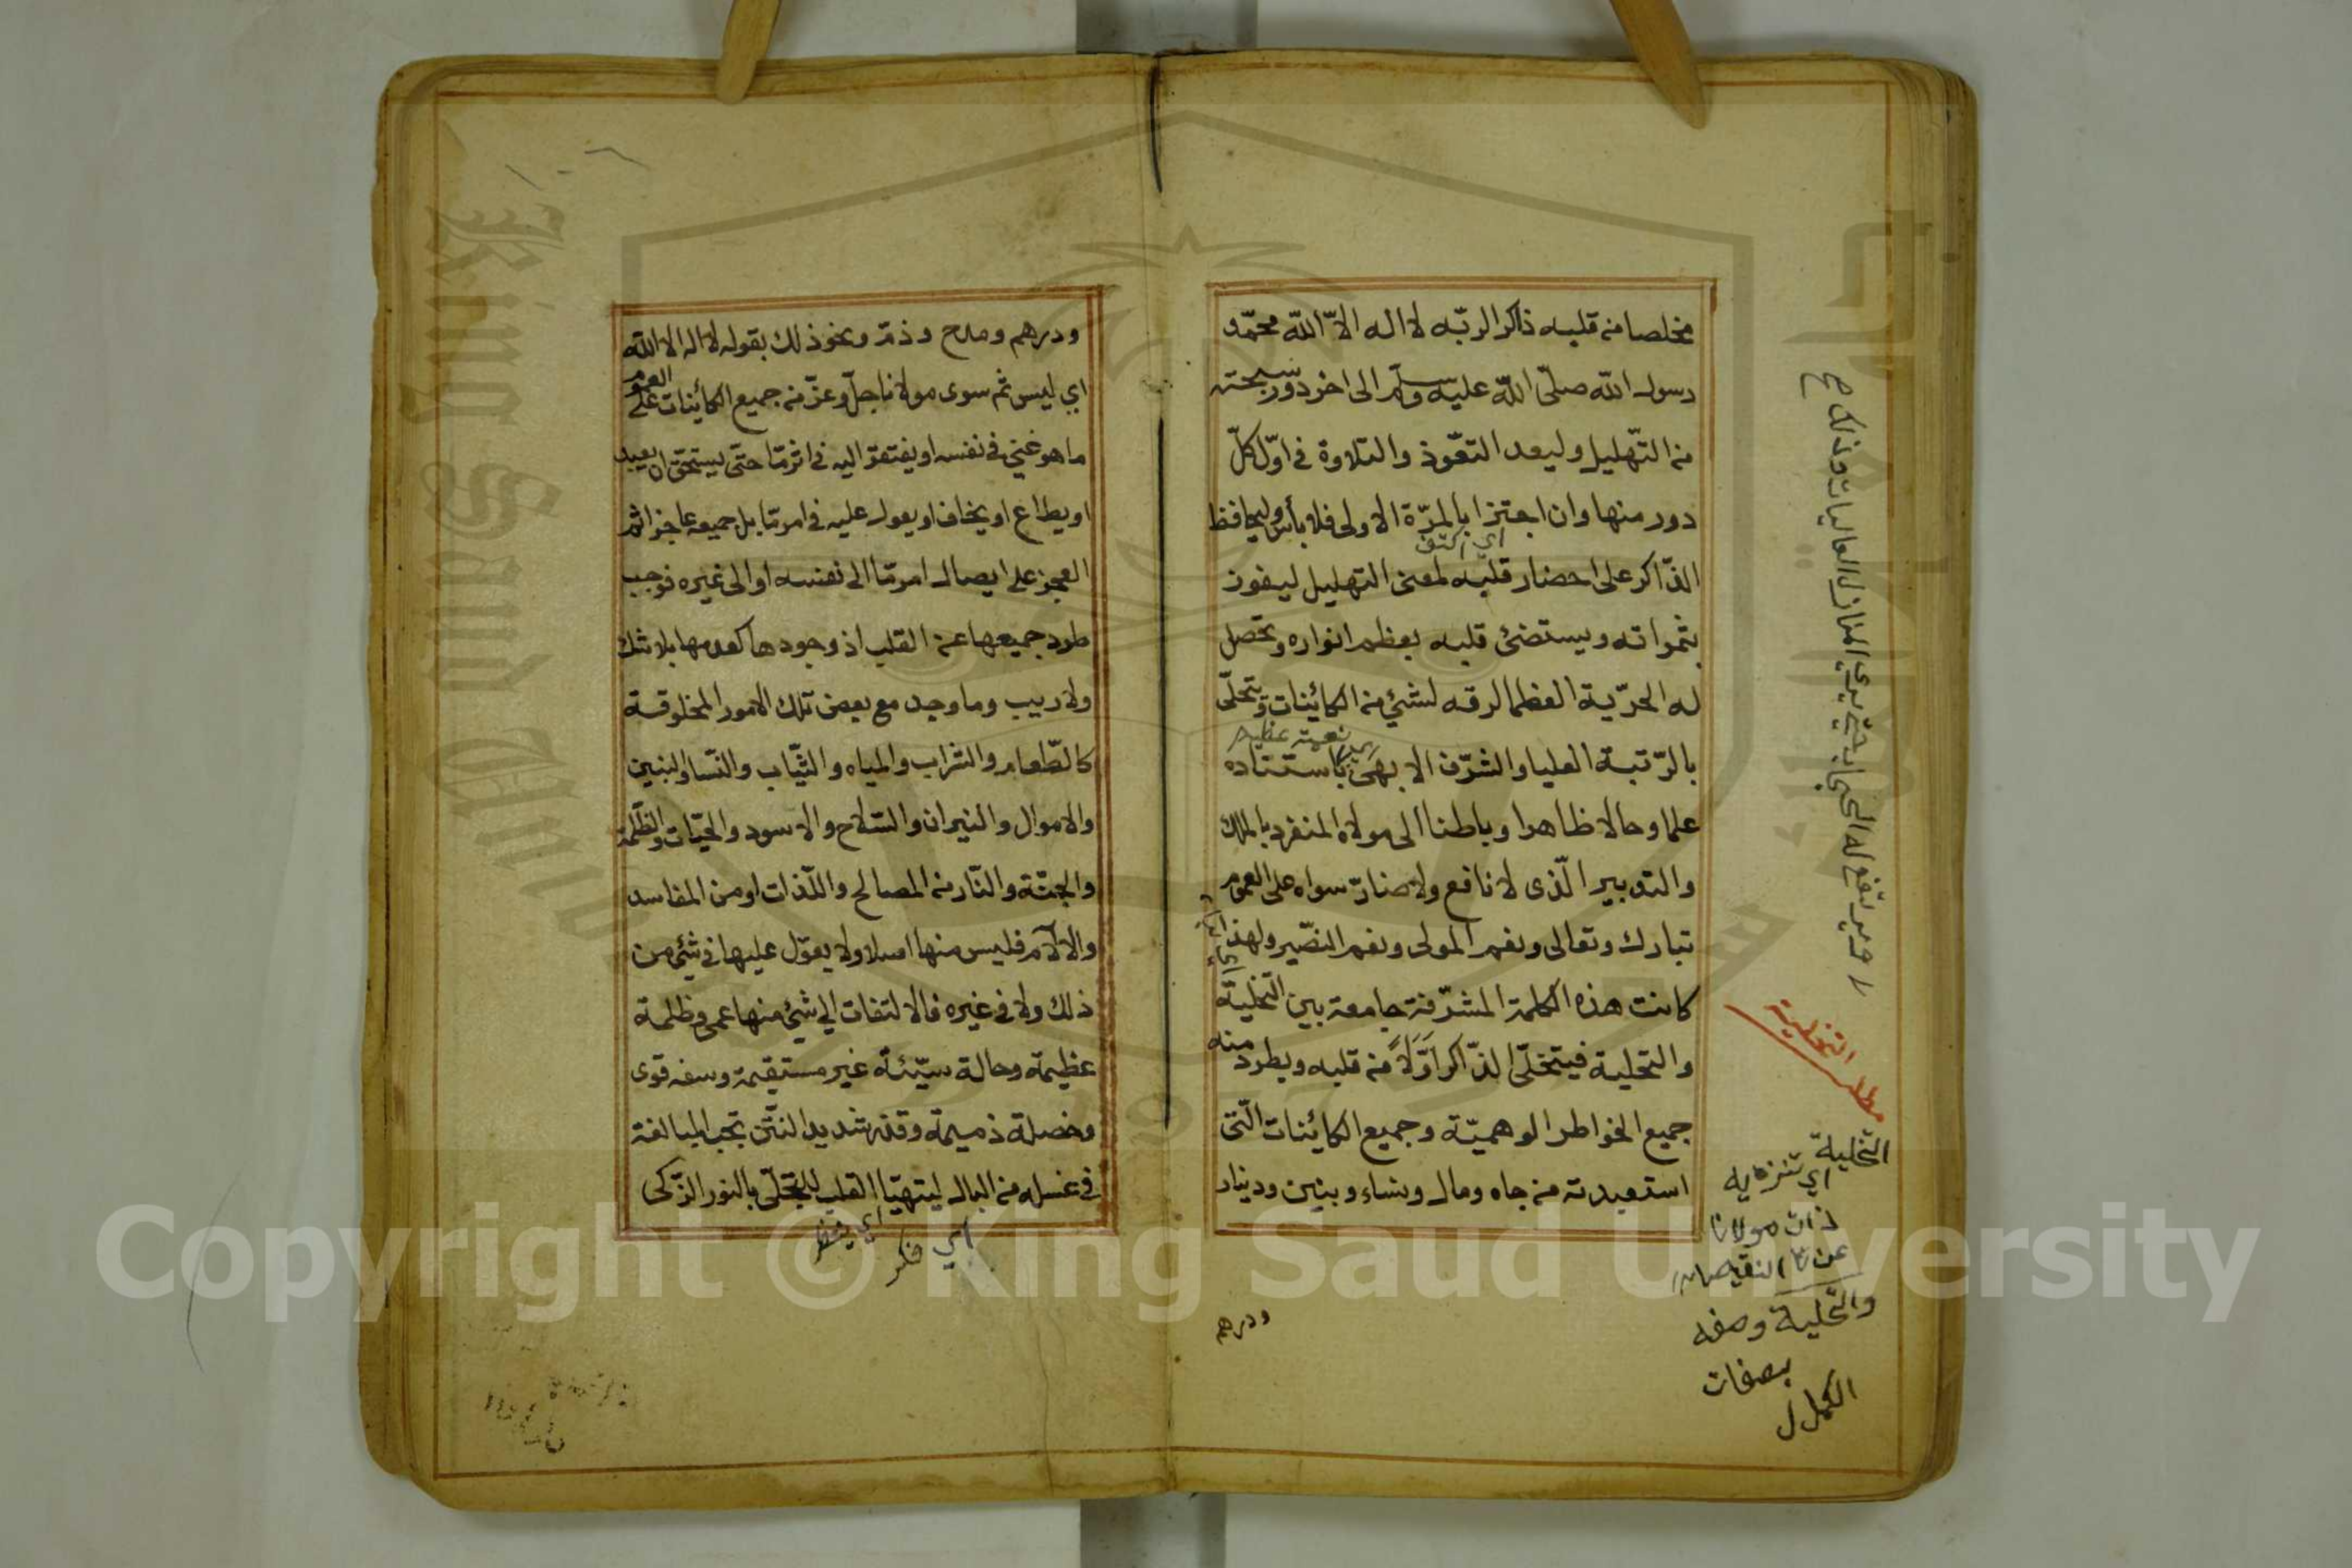 مخلصا من قلبه ذاكرا لربّه لا اله الاّ اللّه محمّد و
رسول اللّه صلّى اللّه عليه وسلّم الى اخر دور سبحته
من التّهليل وليعد التعّوذ والتلاوة في اوّل كلّ
دور منها وان اجتزا بالمرّة الاولى فلا بأس وليحافظ
اي اكتفى
الذّاكر على احضار قلبه لمعنى التهليل ليفوز
بثمراته ويستضئ قلبه بعظم انواره وتحصل
له الحرّية العظما لرقه لشئ من الكائنات وتتحلّى
نعمة عظيم
بالرّتبة العليا والشرّف الابهى باستناده
علما وحالا ظاهرا وباطنا الى مولاه المنفرد بالملك
والتدبير الّذى لا نافع ولا ضارّ سواه على العموم
تبارك وتعالى ونعم المولى ونعم النصّير ولهذا
كانت هذه الكلمة المشرّفة جامعة بين التخلية
والتحلية فيتخلّى الذّاكر اوّلاً من قلبه ويطرد منه
جميع الخواطر الوهميّة وجميع الكائنات الّتى
استعبدته من جاه ومال ونساء وبنين ودينار
ودرهم
مطلب التخلية
التخلية
اي تنزه به
ذات مولانا
عن النقيصات
والتحلية وصفه
بصفات
الكمال
ودرهم ومدح وذمّ ونحو ذلك بقوله لا اله الا اللّه
اي ليس ثم سوى مولانا جلّ وعزّ من جميع الكائنات على العموم
ما هو غني في نفسه او يفتقر اليه في اثر مّا حتّى يستحقّ ان يعبد
او يطاع او يخاف او يعول عليه في امر مّا بل جميعه عاجز اثم
العجز على ايصال امر مّا الى نفسه او الى غيره فوجب
طرد جميعها عن القلب اذ وجودها كعدمها بلا شك
ولا ريب وما وجد مع بعض تلك الامور المخلوقة
كالطّعام والشراب والمياه والثّياب والنّسا والبنين
والاموال والنيران والسّلاح والاسود والحيّات والظّلمة
والجنّة والنّار من المصالح واللّذات او من المفاسد
والالآم فليس منها اصلا ولا يعوّل عليها في شئ من
ذلك ولا في غيره فالالتفات الي شئ منها عمى وظلمة
عظيمة وحالة سيّئة غير مستقيمة وسفه قوى
وخصلة ذميمة وقذر شديد النّتن تجب المبالغة
في غسله من البال ليتهيّا القلب للتحلّى بالنور الزّكى
اي فكر